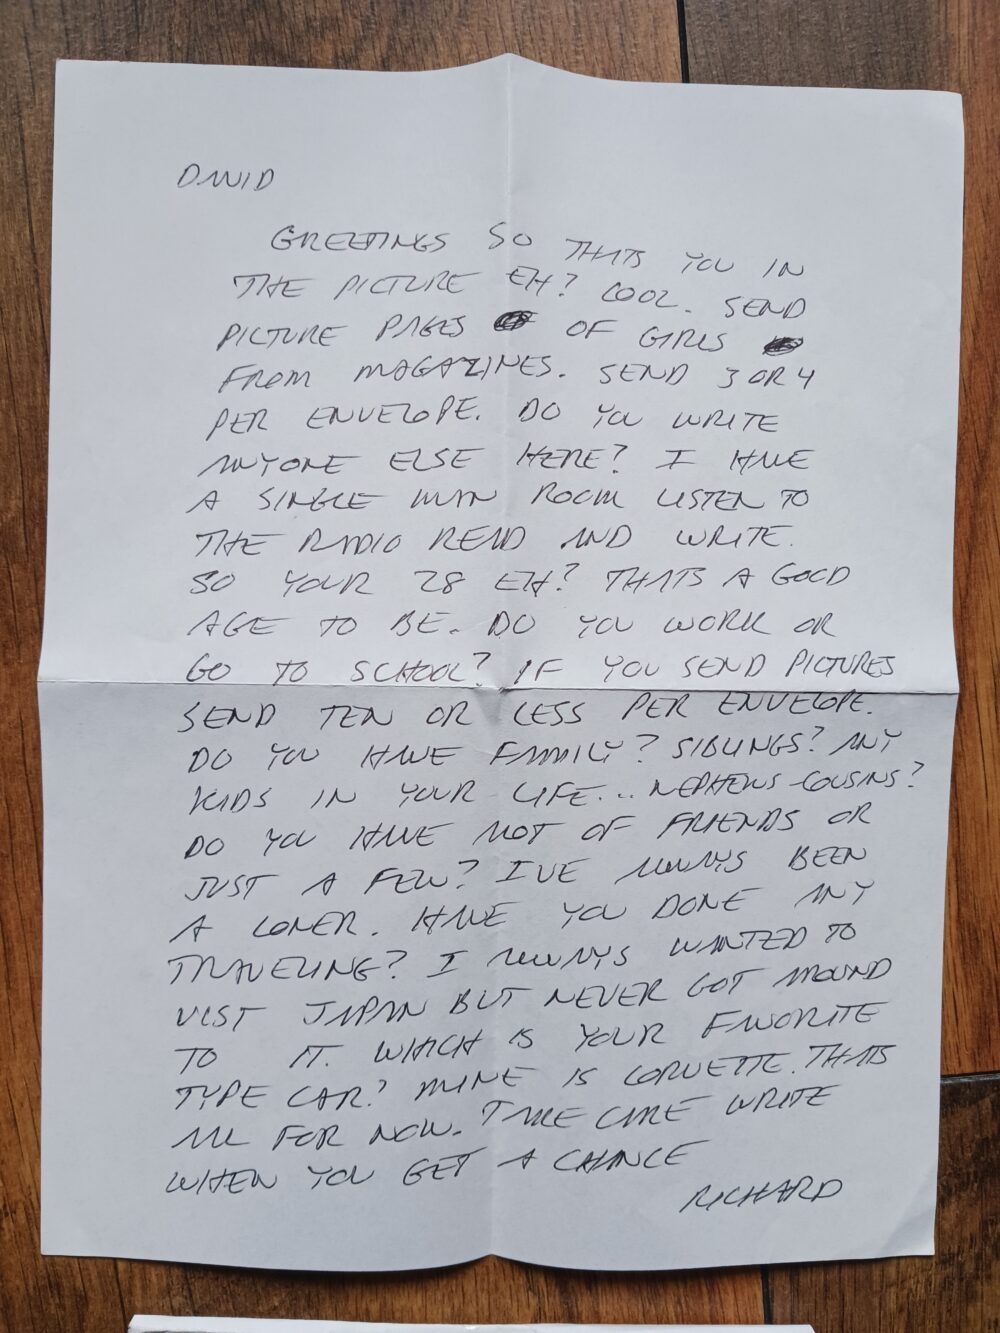 DAVID
GREETINGS SO THATS YOU IN
THE PICTURE EH? COOL. SEND
PICTURE PAGES OF GIRLS
FROM MAGAZINES. SEND 3 OR 4
PER ENVELOPE. DO YOU WRITE
ANYONE ELSE HERE? I HAVE
A SINGLE MAN ROOM LISTEN TO
THE RADIO READ AND WRITE.
SO YOUR 28 EH? THATS A GOOD
AGE TO BE. DO YOU WORK OR
GO TO SCHOOL? IF YOU SEND PICTURES
SEND TEN OR LESS PER ENVELOPE.
DO YOU HAVE FAMILY? SIBLINGS? ANY
KIDS IN YOUR LIFE... NEPHEWS-COUSINS?
DO YOU HAVE ALOT OF FRIENDS OR
JUST A FEW? I'VE ALWAYS BEEN
A LONER. HAVE YOU DONE ANY
TRAVELING? I ALWAYS WANTED TO
VIST JAPAN BUT NEVER GOT AROUND
TO IT. WHICH IS YOUR FAVORITE
TYPE CAR? MINE IS CORVETTE. THATS
ALL FOR NOW. TAKE CARE WRITE
WHEN YOU GET A CHANCE
RICHARD